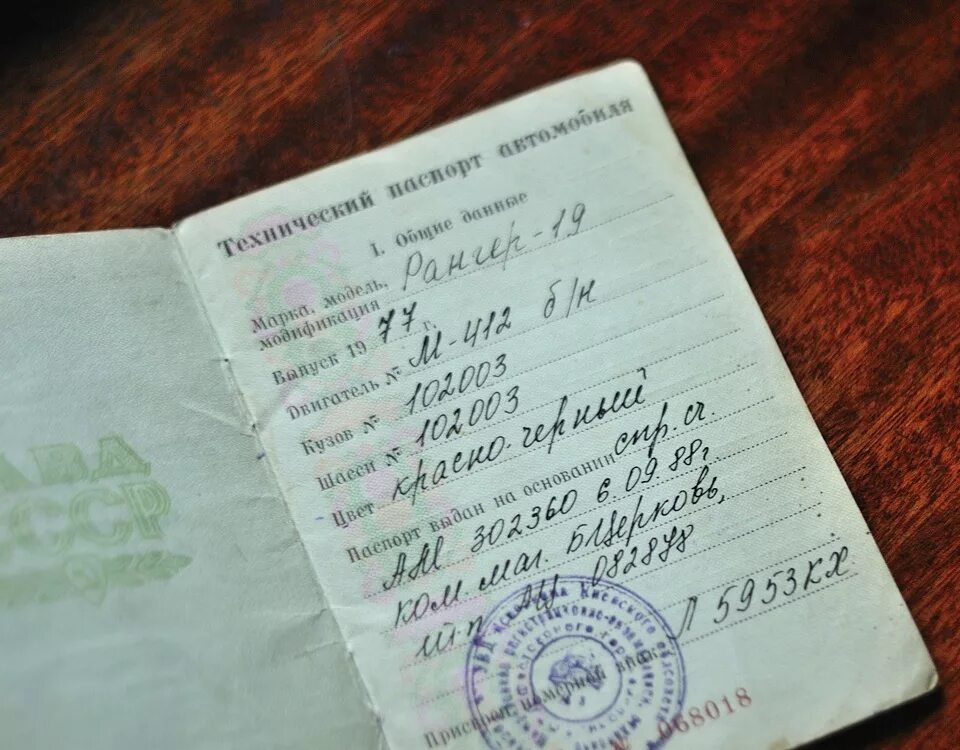 СССР
Технический паспорт автомобиля
I. Общие данные
Марка, модель,
модификация Рангер-19
Выпуск 1977 г.
Двигатель № М-412 б/н
Кузов № 102003
Шасси № 102003
Цвет красно-черный
Паспорт выдан на основании спр. сч.
302360 6.09.88г
ком. маг. Б Церковь,
082878
Л 5953КХ
Присвоен номерной знак
№ 068018